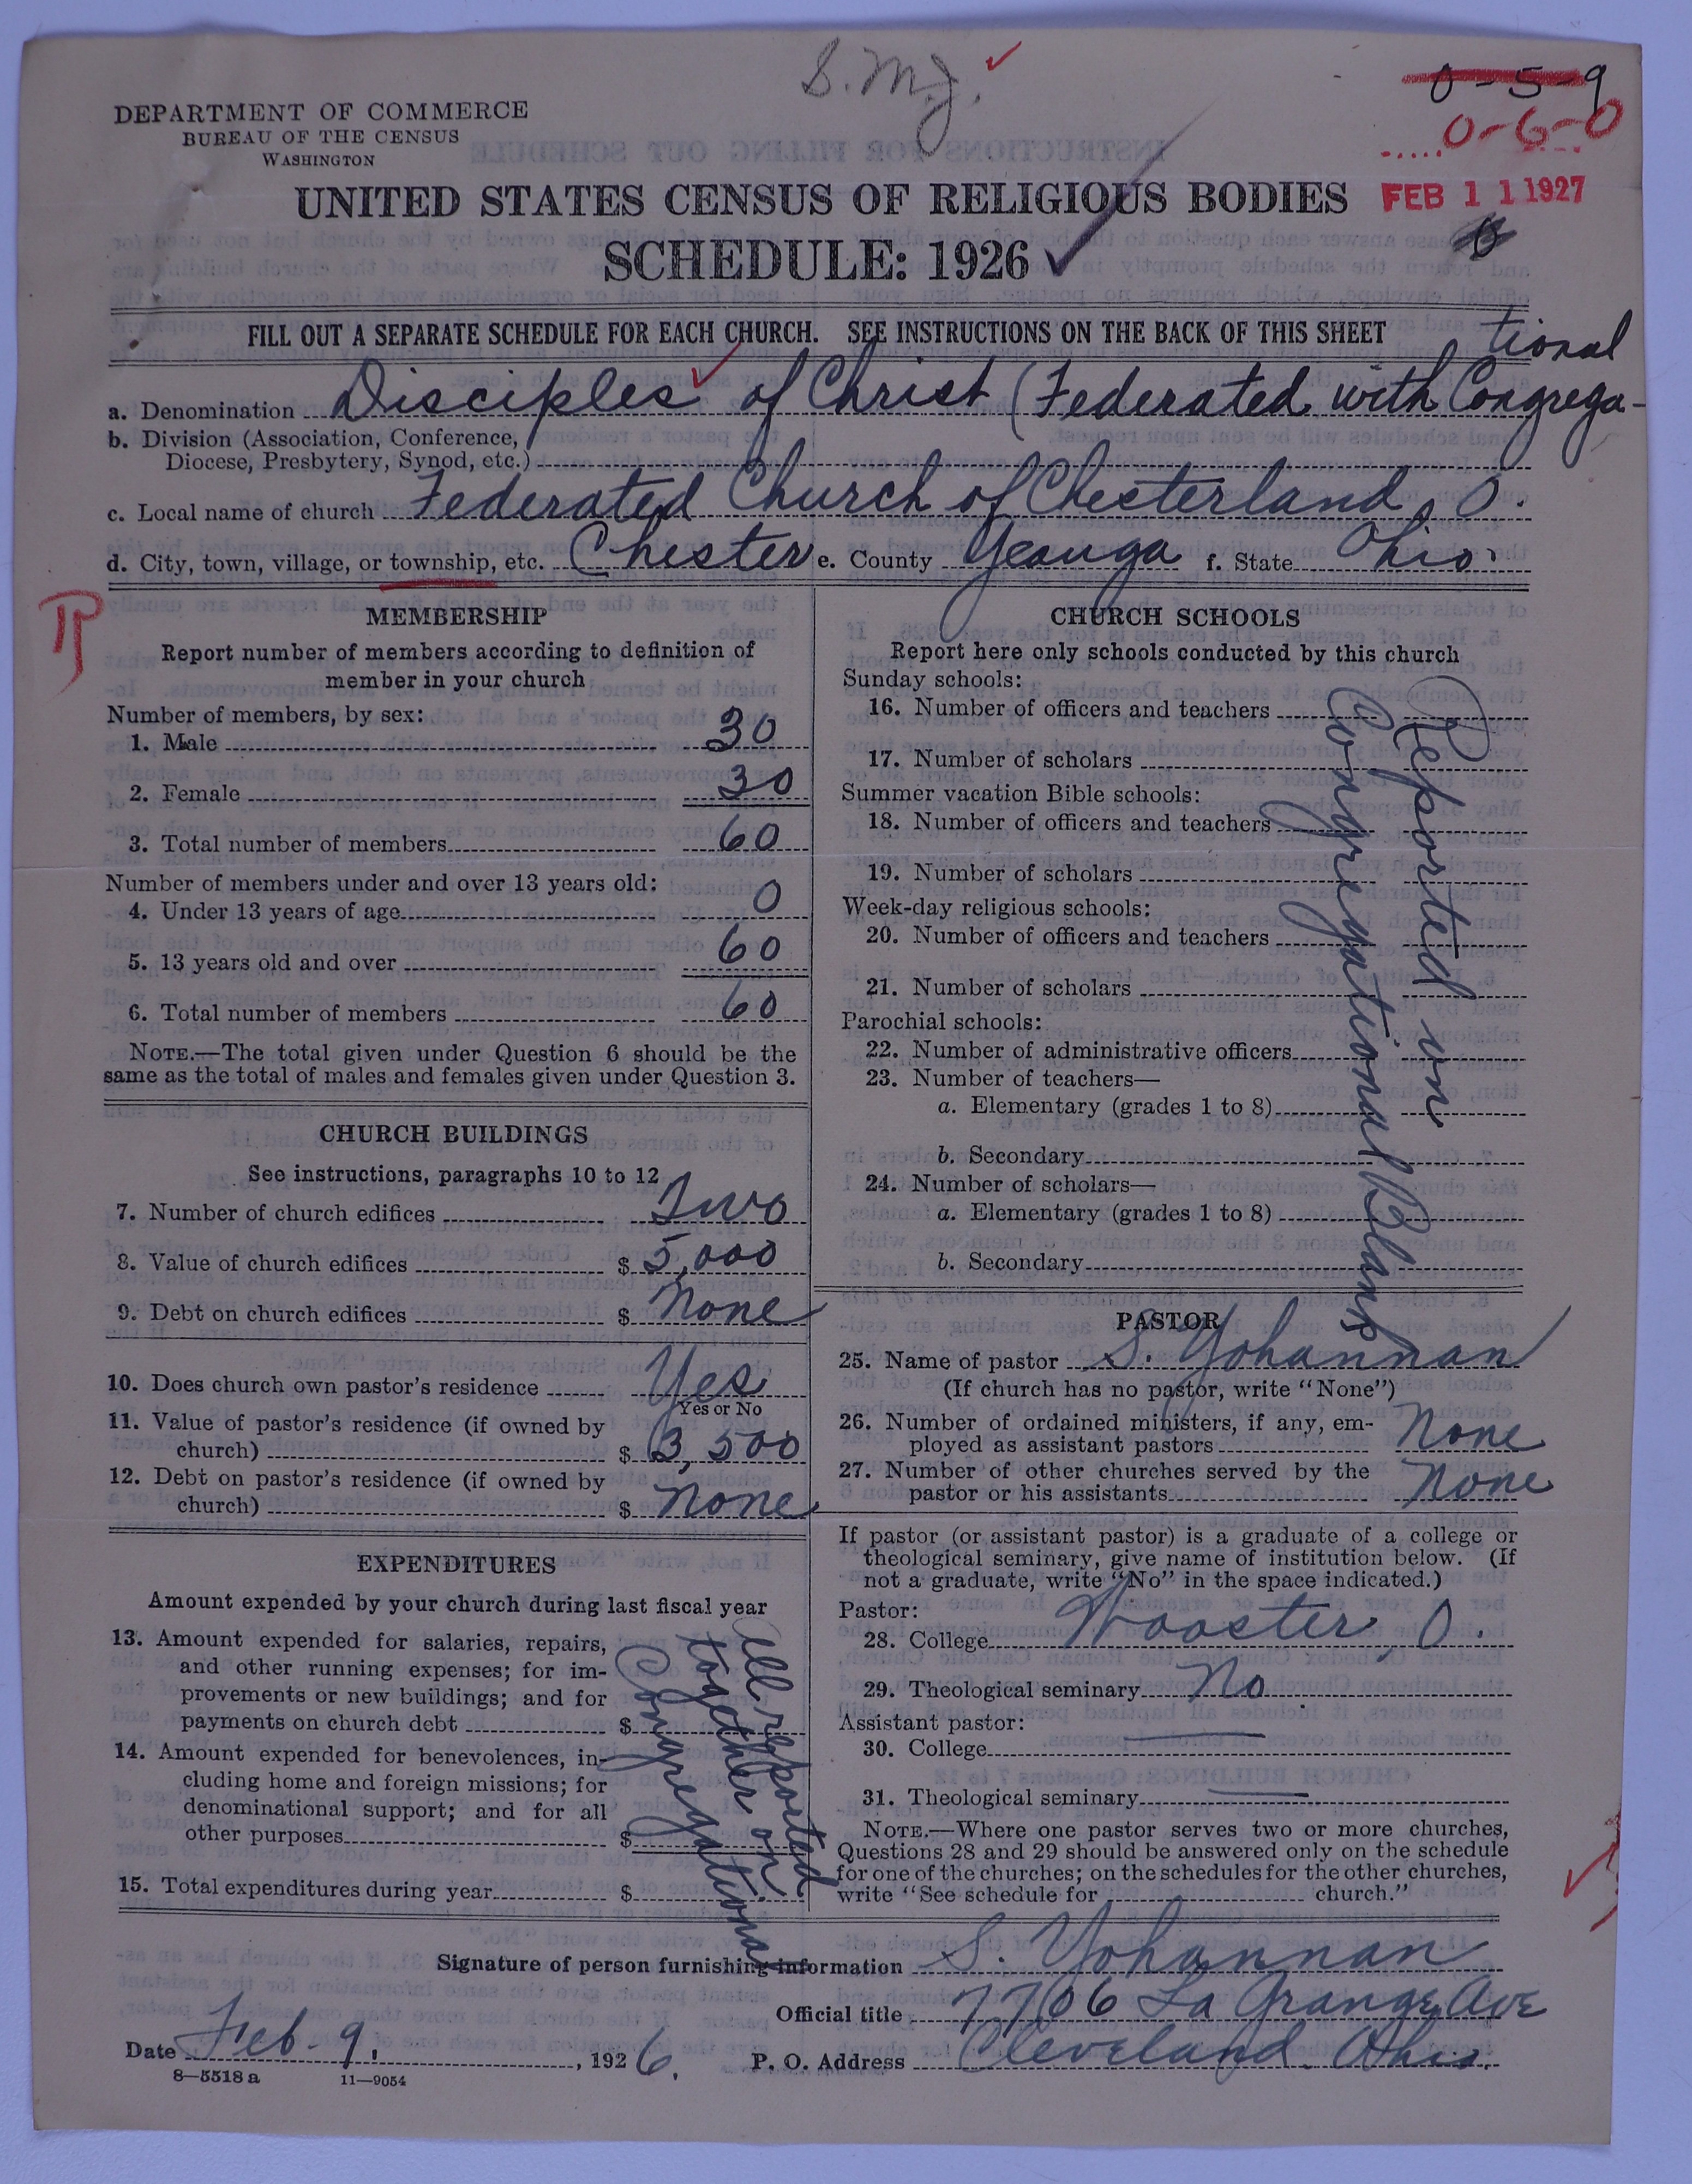 S.M.J.
0-5-9
0-6-0
DEPARTMENT OF COMMERCE
BUREAU OF THE CENSUS
WASHINGTON
UNITED STATES CENSUS OF RELIGIOUS BODIES
FEB 11 1927
SCHEDULE: 1926
FILL OUT A SEPARATE SCHEDULE FOR EACH CHURCH. SEE INSTRUCTIONS ON THE BACK OF THIS SHEET
a. Denomination Disciples of Christ (Federated with Congrega-
tional
b. Division (Association, Conference,
Diocese, Presbytery, Synod, etc.)
c. Local name of church Federated Church of Chesterland, O.
d. City, town, village, or township, etc. Chester e. County Geauga f. State Ohio
MEMBERSHIP
Report number of members according to definition of
member in your church
Number of members, by sex:
1. Male 30
2. Female 30
3. Total number of members 60
Number of members under and over 13 years old:
4. Under 13 years of age 0
5. 13 years old and over 60
6. Total number of members 60
NOTE.—The total given under Question 6 should be the
same as the total of males and females given under Question 3.
CHURCH BUILDINGS
See instructions, paragraphs 10 to 12
7. Number of church edifices Two
8. Value of church edifices $ 5,000
9. Debt on church edifices $ None
10. Does church own pastor's residence Yes
Yes or No
11. Value of pastor's residence (if owned by
church) $ 3,500
12. Debt on pastor's residence (if owned by
church) $ None
EXPENDITURES
Amount expended by your church during last fiscal year
13. Amount expended for salaries, repairs,
and other running expenses; for im-
provements or new buildings; and for
payments on church debt $
14. Amount expended for benevolences, in-
cluding home and foreign missions; for
denominational support; and for all
other purposes $
15. Total expenditures during year $
All reported
together on
Congregational
CHURCH SCHOOLS
Report here only schools conducted by this church
Sunday schools:
16. Number of officers and teachers
17. Number of scholars
Summer vacation Bible schools:
18. Number of officers and teachers
19. Number of scholars
Week-day religious schools:
20. Number of officers and teachers
21. Number of scholars
Parochial schools:
22. Number of administrative officers
23. Number of teachers—
a. Elementary (grades 1 to 8)
b. Secondary
24. Number of scholars—
a. Elementary (grades 1 to 8)
b. Secondary
Reported on
Congregational Blanks
PASTOR
25. Name of pastor S. Yohannan
(If church has no pastor, write "None")
26. Number of ordained ministers, if any, em-
ployed as assistant pastors None
27. Number of other churches served by the
pastor or his assistants None
If pastor (or assistant pastor) is a graduate of a college or
theological seminary, give name of institution below. (If
not a graduate, write "No" in the space indicated.)
Pastor:
28. College Wooster, O.
29. Theological seminary No
Assistant pastor:
30. College
31. Theological seminary
NOTE.—Where one pastor serves two or more churches,
Questions 28 and 29 should be answered only on the schedule
for one of the churches; on the schedules for the other churches,
write "See schedule for church."
Signature of person furnishing information S. Yohannan
Official title 7706 La Grange Ave
Date Feb. 9, , 1926. P. O. Address Cleveland. Ohio.
8—5518 a 11—9054